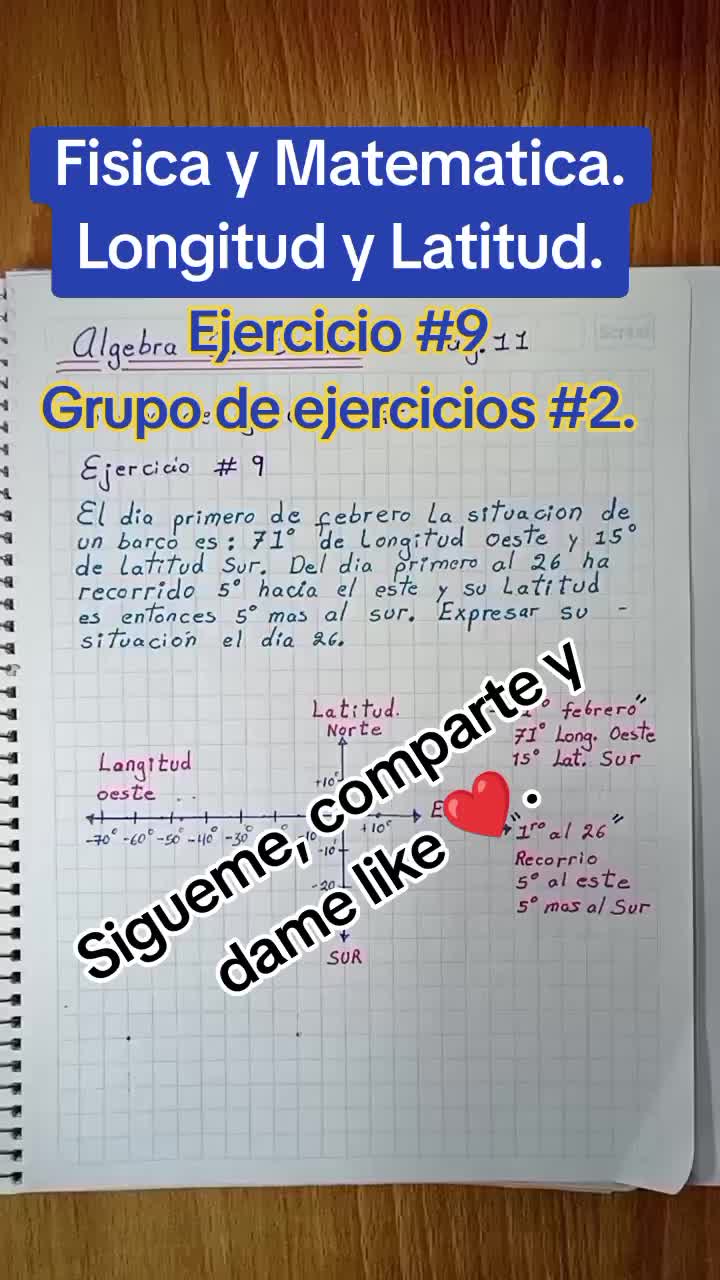 Fisica y Matematica.
Longitud y Latitud.
Algebra
11
Ejercicio #9
Grupo de ejercicios #2.
Ejercicio # 9
El dia primero de febrero La situacion de
un barco es : 71° de Longitud oeste y 15°
de Latitud Sur. Del dia primero al 26 ha
recorrido 5° hacia el este y su Latitud
es entonces 5° mas al sur. Expresar su -
situación el dia 26.
Latitud.
Norte
Langitud
oeste
+10°
E
-70° -60° -50° -40° -30° -10 +10°
-10°
-20
SUR
° febrero"
71° Long. Oeste
15° Lat. Sur
"1ro al 26"
Recorrio
5° al este
5° mas al Sur
Sigueme, comparte y
dame like ❤️.